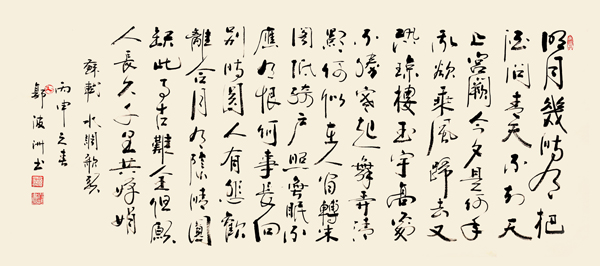 明月幾時有把
酒問青天不知天
上宮闕今夕是何年
我欲乘風歸去又
恐瓊樓玉宇高處
不勝寒起舞弄清
影何似在人間轉朱
閣低綺户照無眠不
應有恨何事長向
別時圓人有悲歡
離合月有陰晴圓
缺此事古難全但願
人長久千里共嬋娟
蘇軾水調歌頭
丙申之春
波洲書